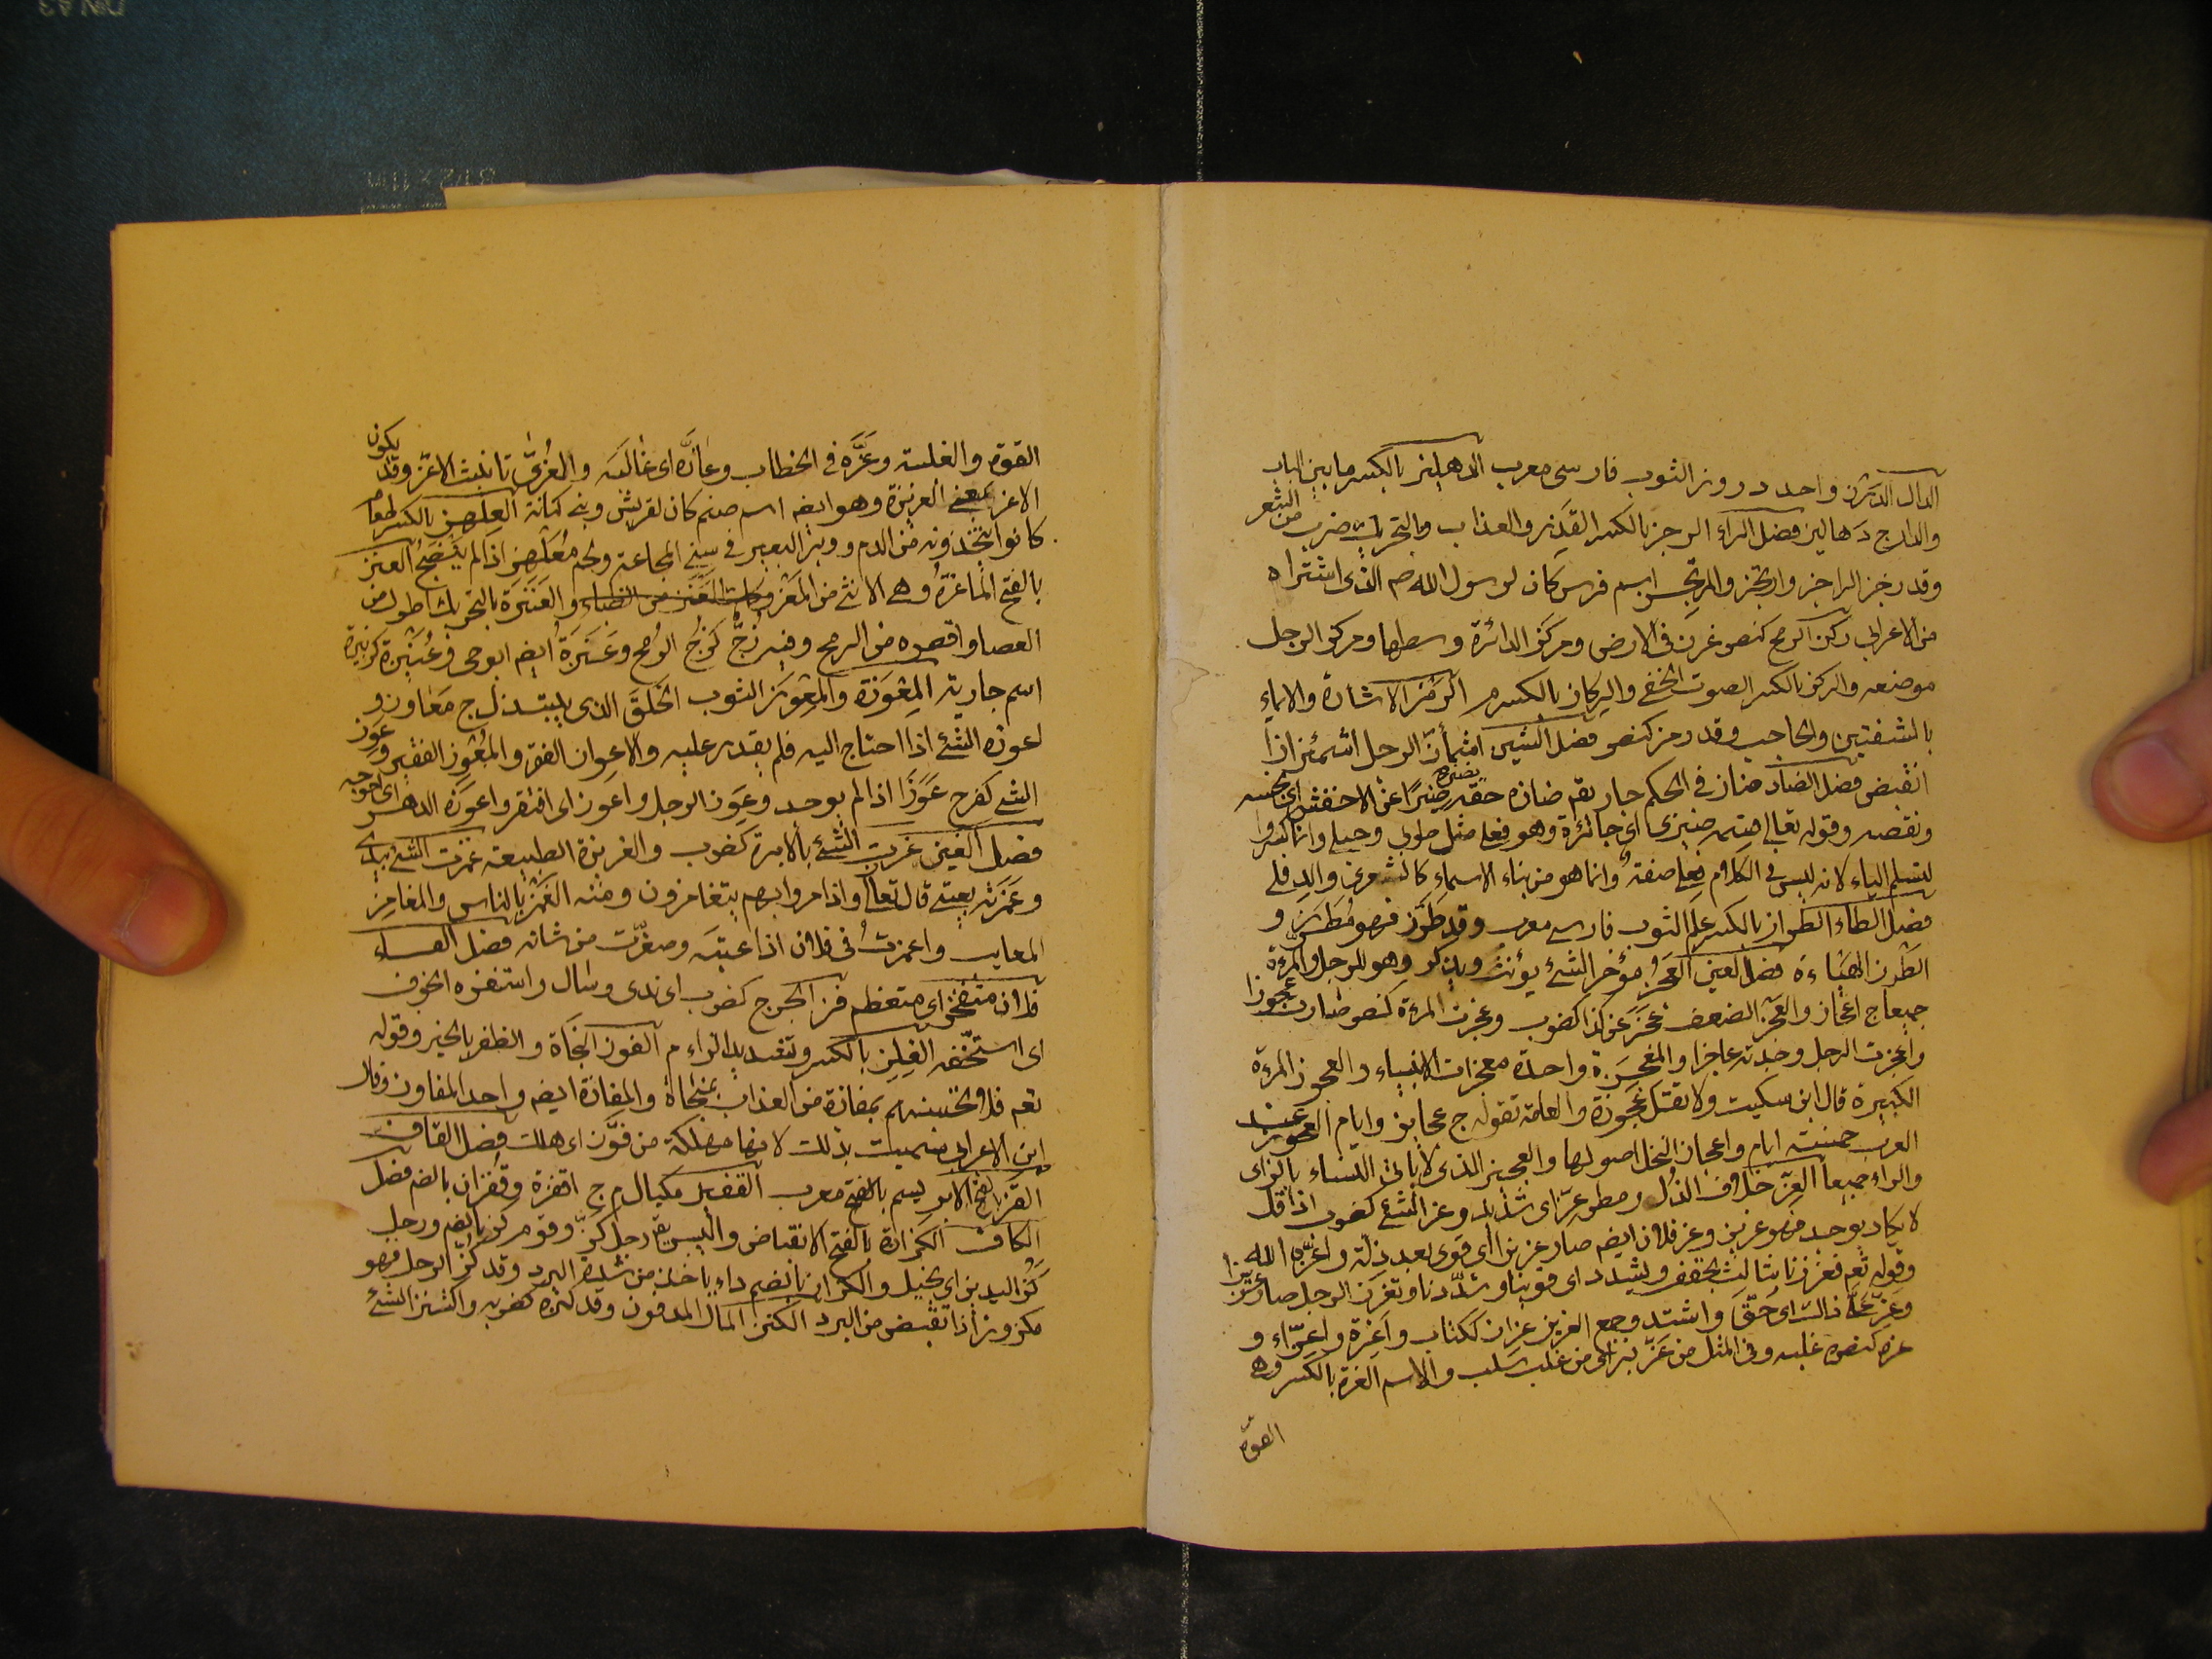 الدال الدَرْز واحد دروز الثوب فارسى معرب الدهليز بالكسر ما بين الباب
والدار ج دَهاليز فصل الراء الرجز بالكسر القَذَر والعذاب وبالتحريك ضرب من الشعر
وقد رجز الراجز وارتجز والمرتجز اسم فرس كان لرسول الله صم الذى اشتراه
من الاعرابى ركز الرمح كنصر غرزه فى الارض ومركز الدائرة وسطها ومركز الرجل
موضعه والركز بالكسر الصوت الخفى والركاز بالكسر م الرَمْز الاشارة والايماء
بالشفتين والحاجب وقد رمز كنصر فصل الشين اشمأزّ الرجل اشمئزازا
انقبض فصل الضاد ضاز فى الحكم جار يقم ضازه حقه يضيزه ضيزًا عن الاخفش اى بخسه
ونقصه وقوله تعالى قسمة ضيزى اى جائرة وهو فعلى مثل طوبى وحبلى وانما كسروا
لتسلم الياء لانه ليس فى الكلام فعلى صفةً وانما هو من بناء الاسماء كالشعرى والدفلى
فصل الطاء الطراز بالكسر علم الثوب فارسى معرب وقد طَرّز فهو مُطَرّز و
الطَرز الهَيْاءة فصل العين العَجُز مؤخر الشئ يؤنث ويذكر وهو للرجل والمرءة
جميعا ج اعجاز والعَجْز الضعف عَجَز عن كذا كضرب وعجزت المرءة كنصر صارت عجوزا
واعجزت الرجل وجدته عاجزا والمعجزة واحدة معجزات الانبياء والعجوز المرءة
الكبيرة قال ابن سكيت ولا تقل عجوزة والعامة تقوله ج عجايز وايام العجوز عند
العرب خمسة ايام واعجاز النخل اصولها والعجيز الذى لا ياتى النساء بالزاى
والراء جميعا العِزّ خلاف الذُل ومطر عزّ اى شديد وعز الشئ كضرب اذا قل
لا يكاد يوجد فهو عزيز وعز فلان ايضم صار عزيزا اى قوى بعد ذلة واعزه الله
وقوله تعم فعززنا بثالث يخفف ويشدد اى قوينا وشدّدنا وتعزز الرجل صار عزيزا
وعزّ عليّ ذلك اى حَقّ واشتد وجمع العزيز عِزاز ككتاب واعزة واعزّاء و
عزه كنصره غلبه وفى المثل من عَزّ بزّ اى من غلب سلب والاسم العزة بالكسر وهى
القوة
القوة والغلبة وعَزّه فى الخطاب وعازّه اى غالبه والعُزّى تانيث الاعزّ وقد يكون
الاعز بمعنى العزيزة وهو ايضم اسم صنم كان لقريش وبنى كنانة العِلهِز بالكسر طعام
كانوا يتخذونه من الدم ووبر البعير فى سنى المجاعة ولحم مُعَلهَز اذا لم ينضج العنز
بالفتح الماعزة وهى الانثى من المَعْز وكذلك العَنْز من الظباء والعَنَزة بالتحريك اطول من
العصا واقصر من الرمح وفيه زُجّ كزج الرمح وعَنَزَة ايضم ابو حى وعُنَيزة كزبيرة
اسم جارية المِعوَزَة والمِعْوَز الثوب الخَلَق الذى يبتذل ج مَعاوز و
اعوزه الشئ اذا احتاج اليه فلم يقدر عليه والاعواز الفقر والمُعْوِز الفقير وعَوِز
الشئ كفرح عَوَزًا اذا لم يوجد وعَوِز الرجل واعوز اى افتقر واعوزه الدهر اى احوجه
فصل الغين غرزت الشئ بالابرة كضرب والغريزة الطبيعة غمزت الشئ بيدى
وغمزته بعينى قال تعالى واذا مروا بهم يتغامزون ومنه الغَمْز بالناس والمغامِز
المعايب واغمزتُ فى فلان اذا عبته وصغّرت من شانه فصل الفاء
فلان متفخز اى متعظم فز الجرح كضرب اى ندى وسال واستفزه الخوف
اى استخفه الفِلِزّ بالكسر وتشديد الزاء م الفوز النجاة والظفر بالخير وقوله
تعم فلا تحسبنهم بمفازة من العذاب بمنجاة والمفازة ايضم واحد المفاوز وقال
ابن الاعرابى سميت بذلك لانها مهلكة من فوّز اى هلك فصل القاف
القزّ بالفتح الابريسم بالفتح معرب القفيز مكيال م ج اقفزة وقفزان بالضم فصل
الكاف الكزازة بالفتح الانقباض واليبس يقم رجل كزّ وقوم كز بالضم ورجل
كزّ اليدين اى بخيل والكزاز بالضم داء ياخذ من شدة البرد وقد كُزّ الرجل فهو
مكزوز اذا تقبّض من البرد الكنز المال المدفون وقد كنزه كضربه واكتنز الشئ